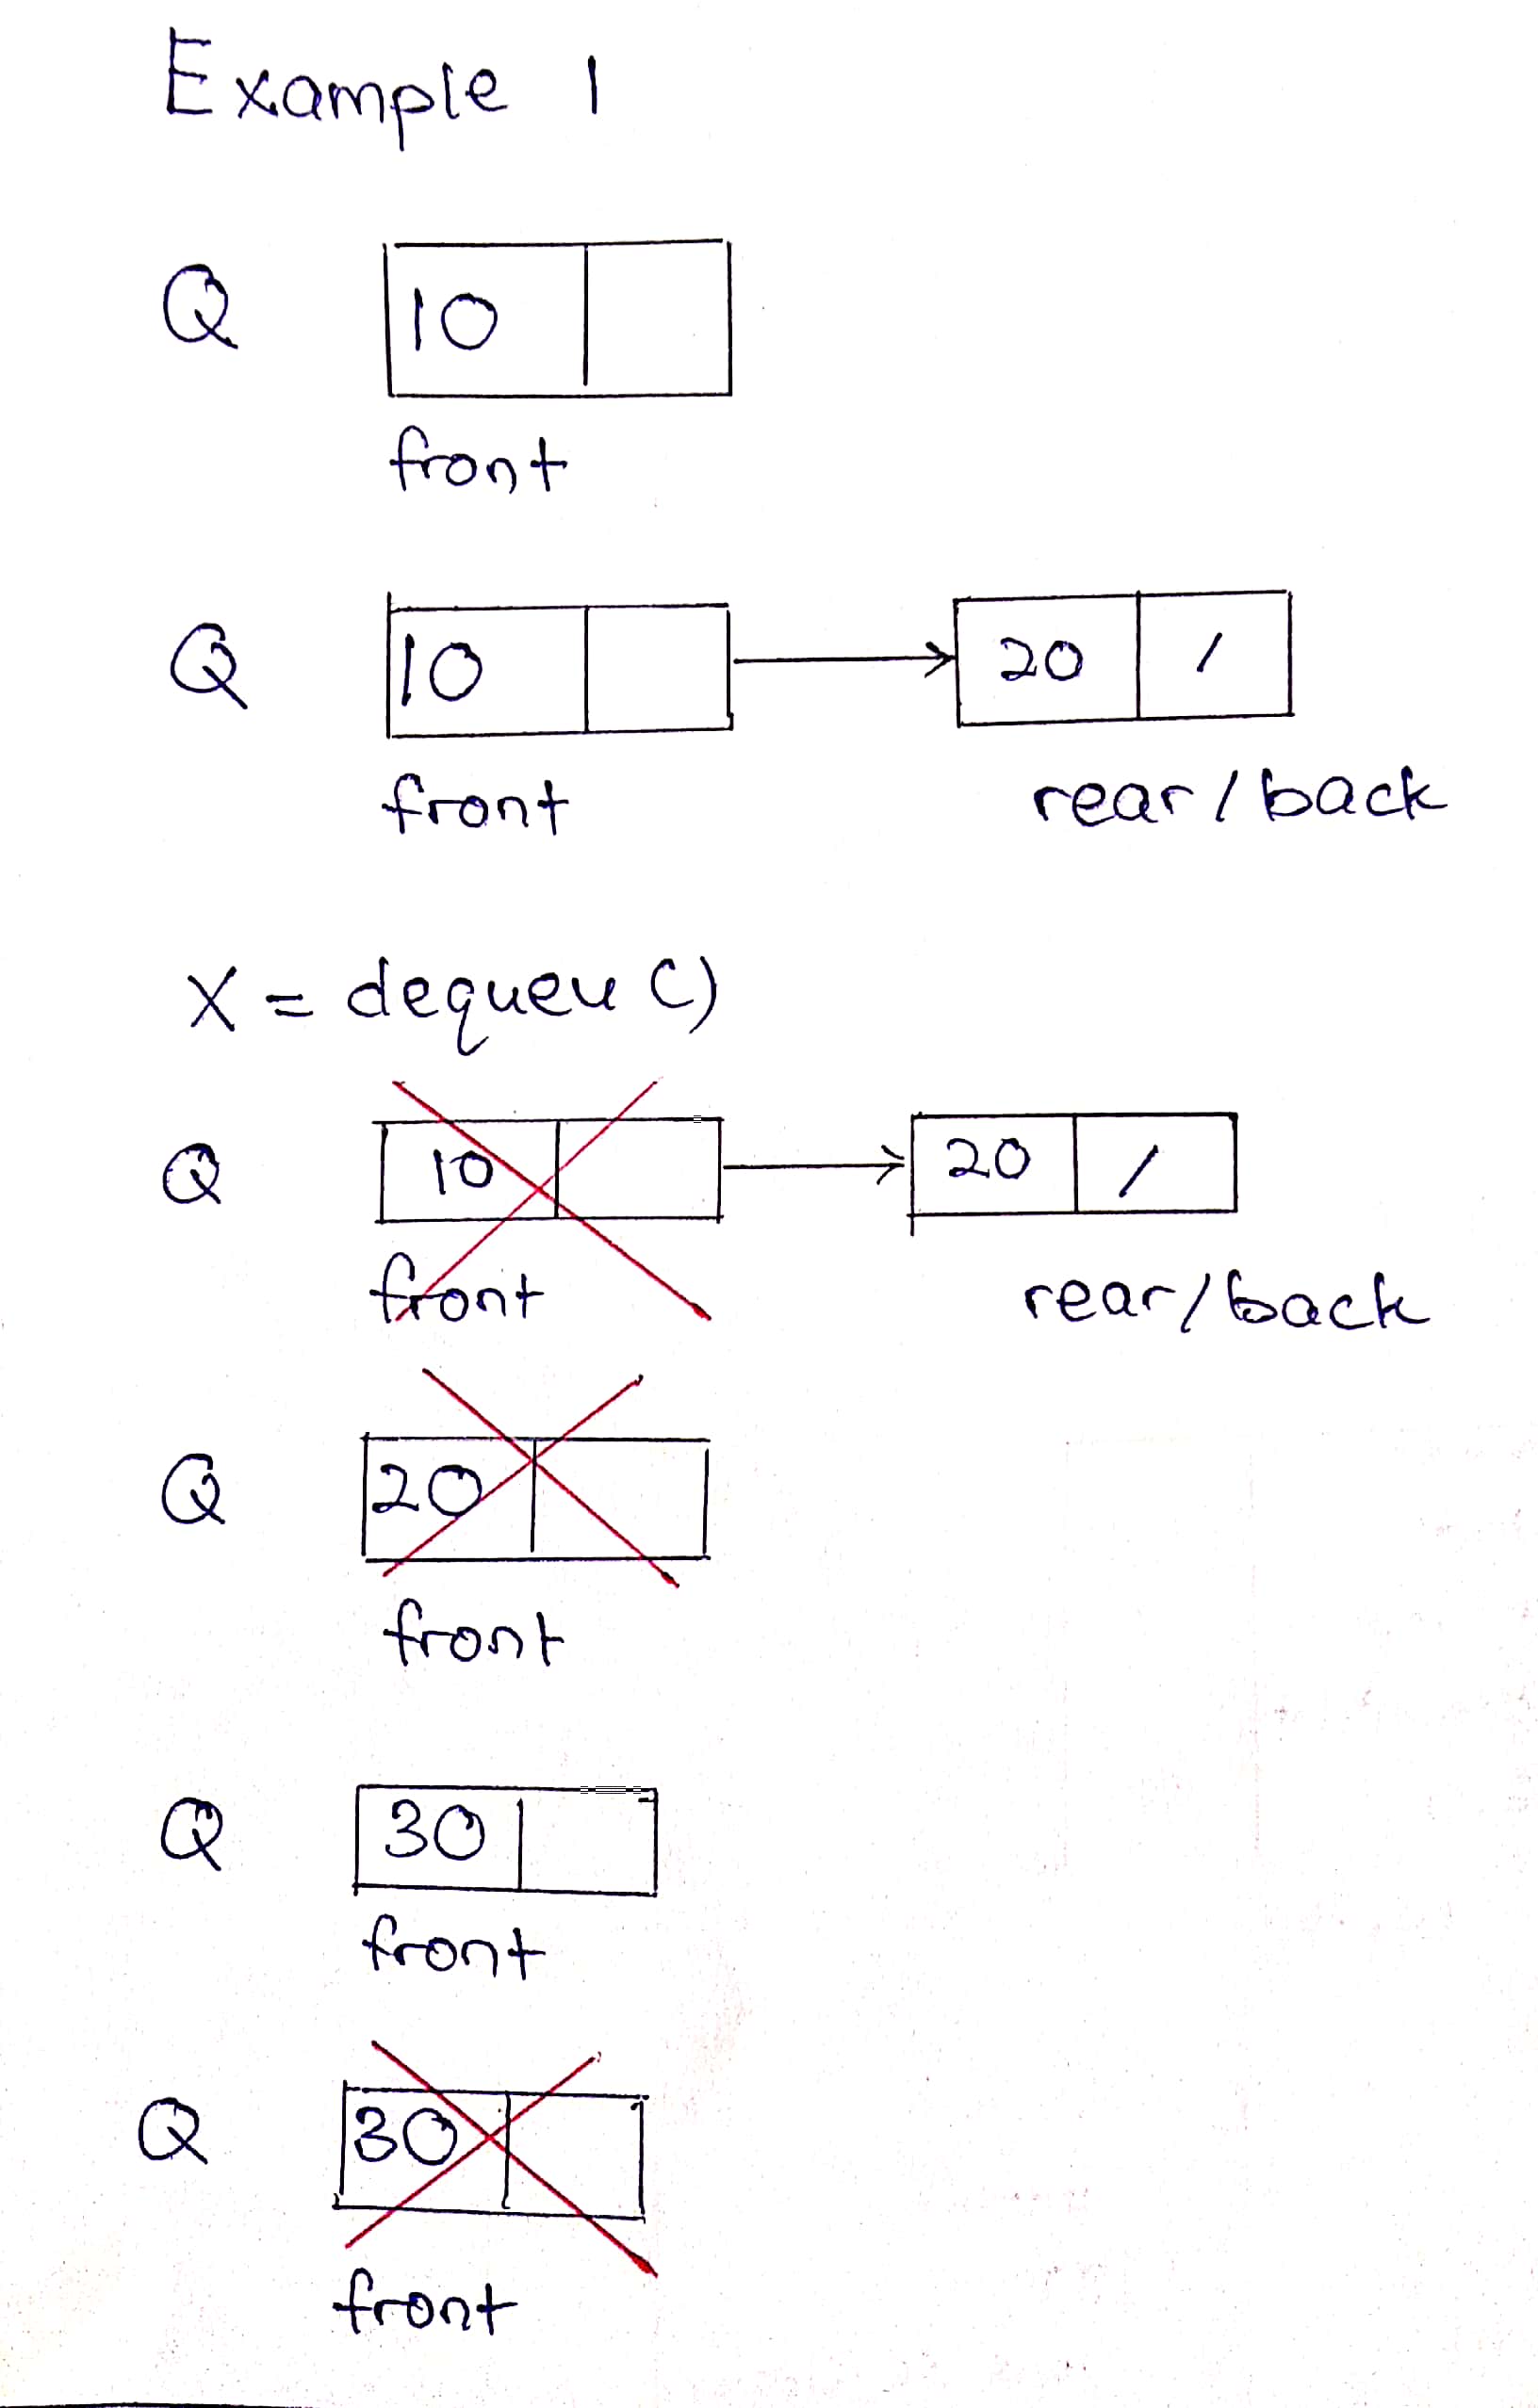 Example 1
Q 10
front
Q 10 20 /
front rear/back
X = dequeu ()
Q 10 20 /
front rear/back
Q 20
front
Q 30
front
Q 30
front